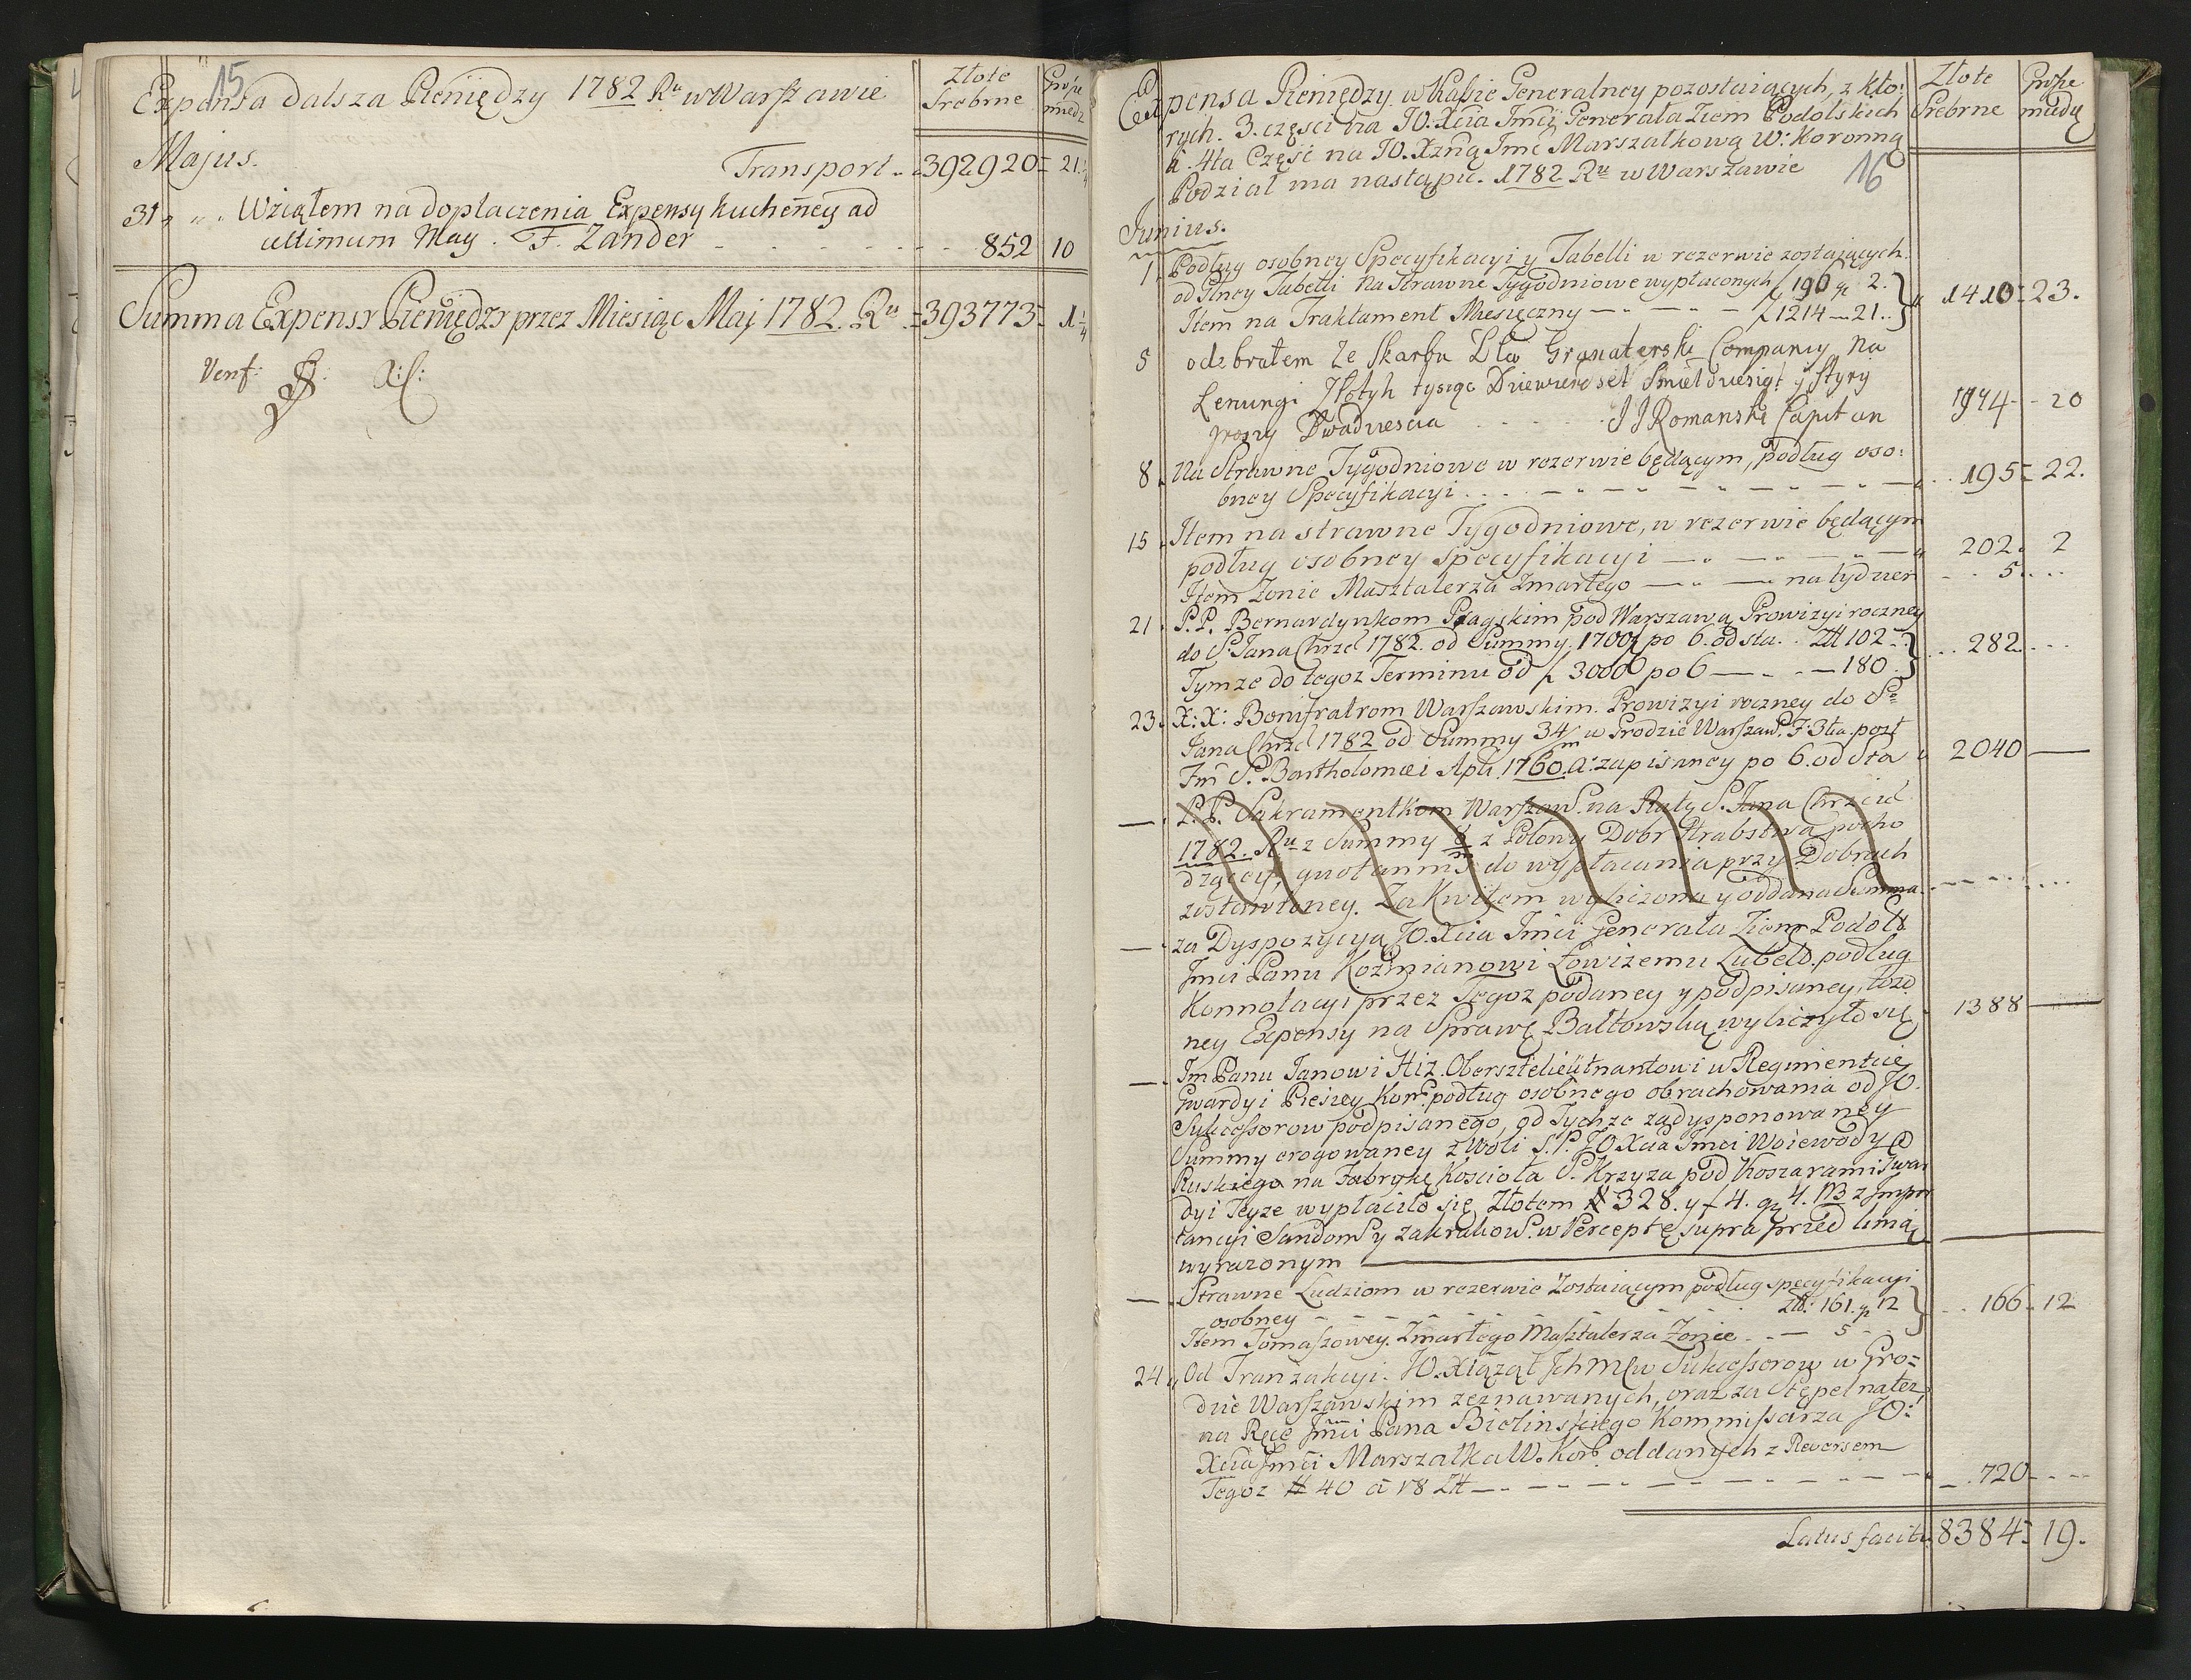 15
Expensa dalsza Pieniędzy 1782 Ru w Warszawie
Złote Srebrne
Grosze miedz
Majus.
Transport 392920 21 1/4
31 Wziąłem na dopłaczenia Expensy kuchenney ad
ultimum May. F. Zander 852 10
Summa Expensy Pieniędzy przez Miesiąc Maj 1782. Ru 393773 1 1/4
Verif:
Expensa Pieniędzy w Kassie Generalney pozostaiących, z kto:
rych. 3. części na JO. Xcia Jmci Generała Ziem Podolskich
a 4ta Część na JO. Xzną Jmc Marszałkową W: Koronną
Podział ma nastąpić. 1782 Ru w Warszawie
16
Złote Srebrne
Grosze miedzą
Junius.
1 Podług osobney Specyfikacyi y Tabelli w rezerwie zostaiących
od Siney Tabelli na Strawne Tygodniowe wypłaconych f 196 gr 2.
Item na Traktament Miesięczny f 1214 21. 1410 23.
5 odebrałem ze Skarbu Dla Granaterski Compamy na
Lenungi Złotyh tysiąc Dziewiencset Sztyry
groszy Dwadziescia JJRomanski Capitan 1944 20
8 Na Strawne Tygodniowe w rezerwie będącym, podług oso:
bney Specyfikacyi 195 22.
15 Item na strawne Tygodniowe, w rezerwie będącym
podług osobney specyfikacyi 202 2
Item Zonie Masztalerza Zmarłego na tydzien 5
21 P.P. Bernardynkom Pragskim pod Warszawą Prowizyi roczney
do S. Jana Chrzcl 1782. od Summy 1700 f po 6. od sta. Zł 102
Tymze do tegoz Terminu od f 3000 po 6 180 282
23 X: X: Bonifratrom Warszawskim. Prowizyi roczney do Sgo
Jana Chrzcl 1782 od Summy 34/m w Grodzie Warszaw. F. 3tia post
Fm S. Bartholomei Apli. 1760. a. zapisaney po 6. od Sta 2040
P.P. Sakramentkom Warszaw. na Ratę S. Jana Chrzciel
1782. Ru z Summy z Połowy Dobr Hrabstwa pocho
dzącey, quotannis do wypłacania przy Dobrach
zostawioney. Za Kwitem wyliczona y oddana Summa
za Dyspozycyą JO. Xcia Jmci Generała Ziem Podols
Jmci Panu Kozmianowi Łowczemu Lubels. podług
Konnotacyi przez Tegoz podaney y podpisaney, łozo
ney Expensy na Sprawę Baltowską wyliczyło się 1388
Jm Panu Janowi Hiz. Obersztelieutnantowi w Regimentcie
Gwardyi Pieszey Korr. podług osobnego obrachowania od JO.
Sukcessorow podpisanego, od Tychze zadysponowaney
Summy erogowaney z Woli S.P. JO Xcia Jmci Woiewody
Ruskiego na Fabrykę Koscioła S. Krzyza pod Koszarami Gwar
dyi Teyze wypłaciło się Złotem # 328. y f 4. gr 4. NB z Impor
tancyi Sandom y zakrakow. w Perceptę supra przed linią
wyrazonym
Strawne Ludziom w rezerwie Zostaiącym podług specyfikacyi
osobney Zł: 161. gr 12
Item Tomaszowey. Zmarłego Masztalerza Zonie 5 166 12
24 Od Tranzakcyi. JO. Xiążąt Jchmciw Sukcessorow w Gro=
dzie Warszawskim zeznawanych, oraz za Stępel należ
na Ręce Jmci Pana Bielinskiego Kommissarza JO:
Xcia Jmci Marszałka W. Kor. oddanych z Reversem
Tegoz # 40 a 18 Zł 720
Latus facit 8384 19.